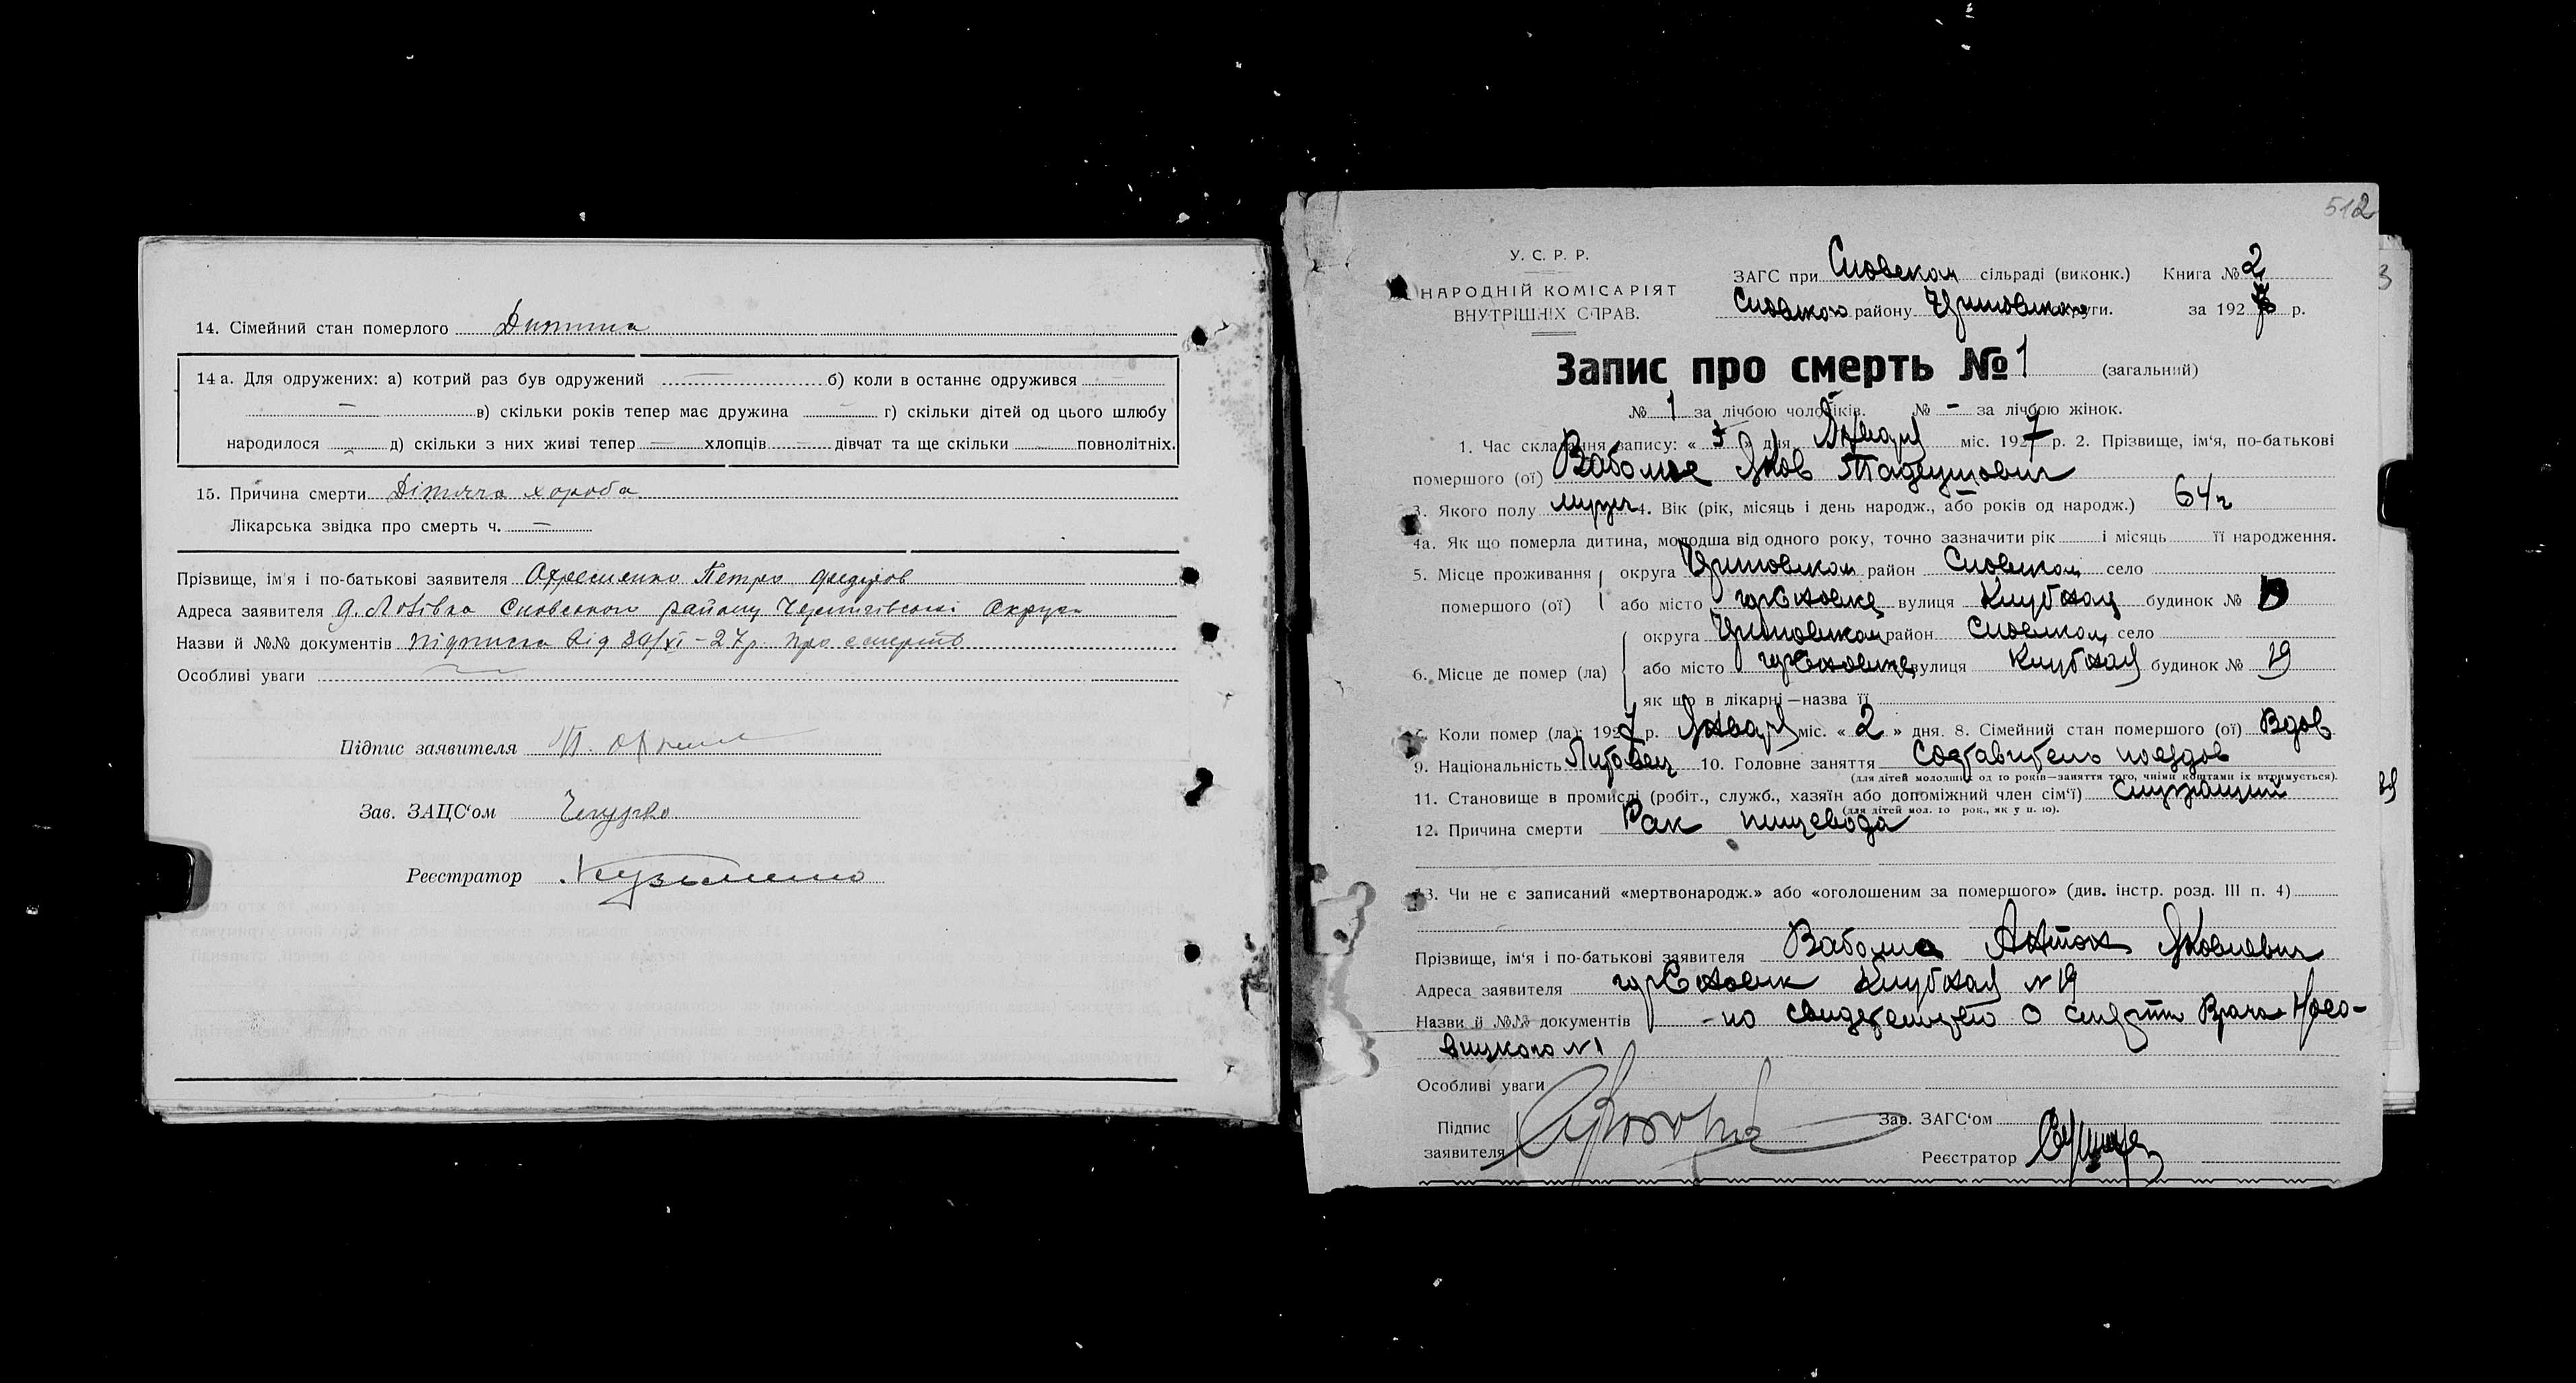 14. Сімейний стан померлого Дитина
14 а. Для одружених: а) котрий раз був одружений — б) коли в останнє одружився —
— в) скільки років тепер має дружина — г) скільки дітей од цього шлюбу
народилося — д) скільки з них живі тепер — хлопців — дівчат та ще скільки — повнолітніх.
15. Причина смерти Дітяча хороба
Лікарська звідка про смерть ч. —
Прізвище, ім'я і по-батькові заявителя Петро Федоров
Адреса заявителя Сновського району Чернигівської Округи
Назви й №№ документів підписка від 30/XI-27р. про смерть
Особливі уваги
Підпис заявителя
Зав. ЗАЦС'ом
Реєстратор Кузьменко
512
У. С. Р. Р.
НАРОДНІЙ КОМІСАРІЯТ
ВНУТРІШНІХ СПРАВ.
ЗАГС при Сновском сільраді (виконк.) Книга № 2
Сновского району округи. за 1927 р.
Запис про смерть № 1 (загальний)
№ 1 за лічбою чоловіків. № - за лічбою жінок.
1. Час складання запису: « 3 » дня Января міс. 1927 р. 2. Прізвище, ім'я, по-батькові
помершого (ої) Яков Тадеушович
3. Якого полу мужч 4. Вік (рік, місяць і день народж., або років од народж.) 64 г
4а. Як що померла дитина, молодша від одного року, точно зазначити рік і місяць її народження.
5. Місце проживання округа район Сновском село
помершого (ої) або місто гор Сновске вулиця Клубная будинок № 19
округа район Сновском село
6. Місце де помер (ла) або місто гор Сновске вулиця Клубная будинок № 19
як що в лікарні—назва її
7. Коли помер (ла): 1927 р. Января міс. « 2 » дня. 8. Сімейний стан помершого (ої) Вдов
9. Національність Литовец 10. Головне заняття Составитель поездов
(для дітей молодших од 10 років—заняття того, чиїми коштами їх втримується).
11. Становище в промислі (робіт., служб., хазяїн або допоміжний член сім'ї) служащий
(для дітей мол. 10 рок., як у п. 10).
12. Причина смерти Рак пищевода
13. Чи не є записаний «мертвонародж.» або «оголошеним за помершого» (див. інстр. розд. III п. 4)
Прізвище, ім'я і по-батькові заявителя Антон Яковлевич
Адреса заявителя гор Сновск Клубная № 19
Назви й №№ документів - по о смерти Врача Ново-
вицкого № 1
Особливі уваги
Підпис
заявителя
Зав. ЗАГС'ом
Реєстратор